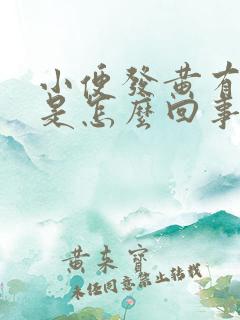 小便發黃有
是怎麼回事
黄来寶
未任同意禁止转载